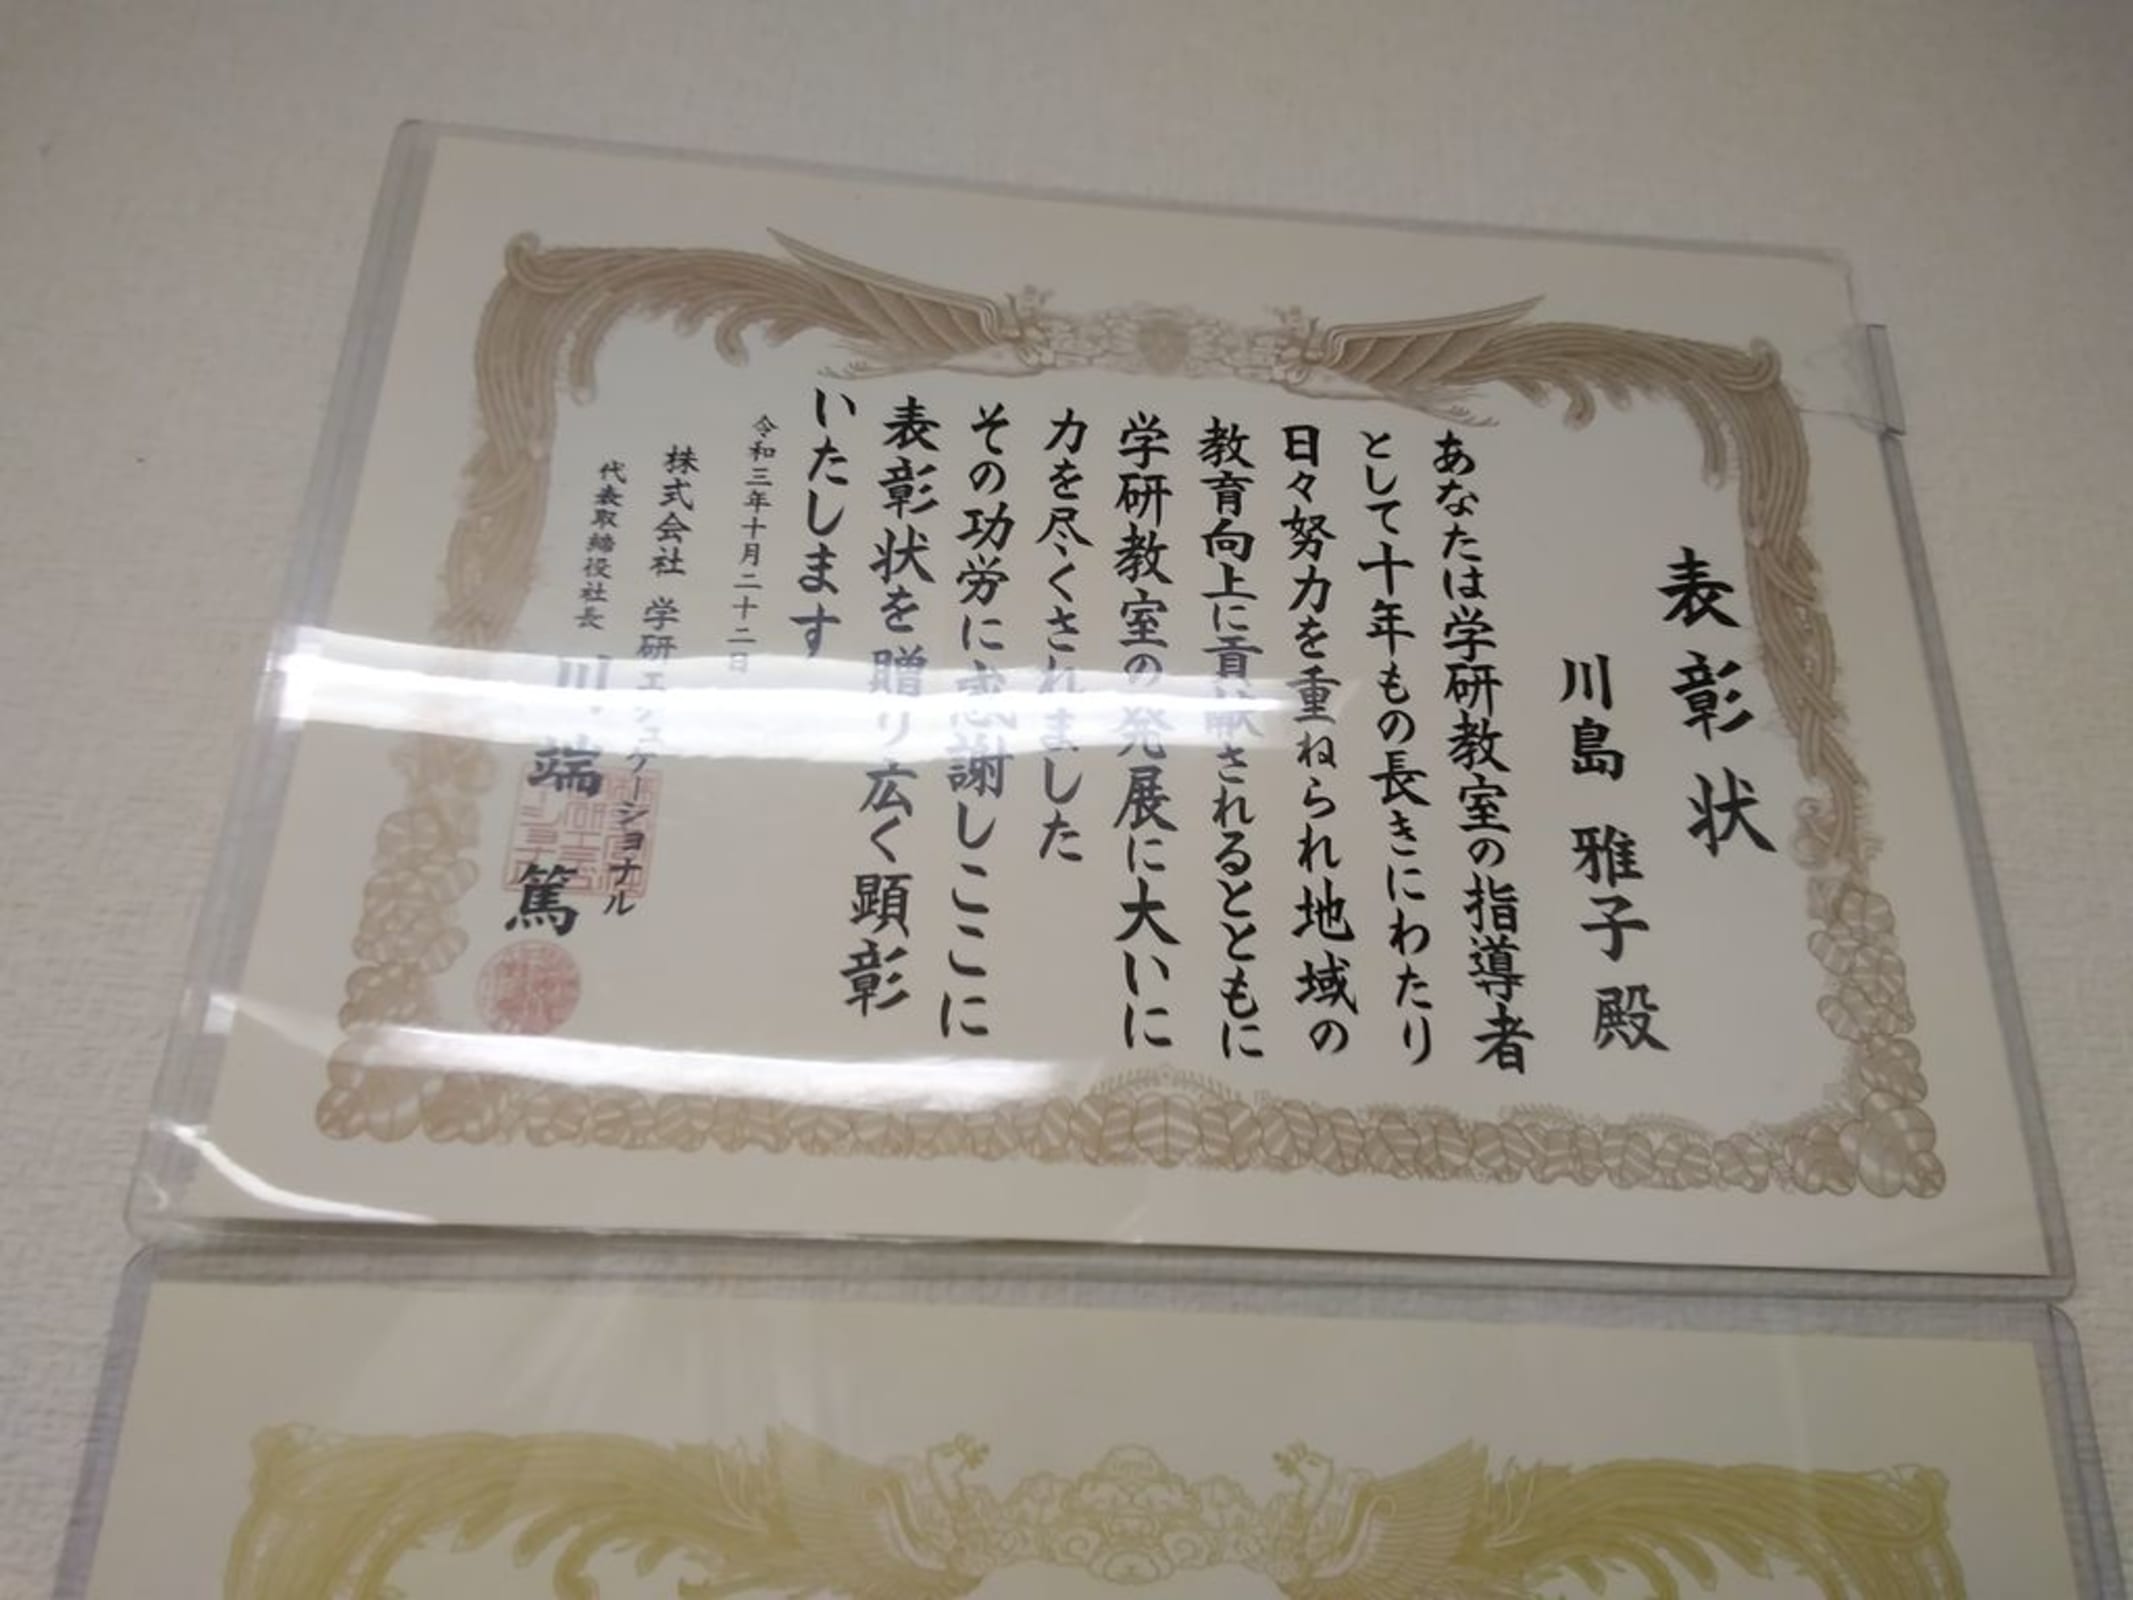 表彰状
川島 雅子 殿
あなたは学研教室の指導者
として十年もの長きにわたり
日々努力を重ねられ地域の
教育向上に貢献されるとともに
学研教室の発展に大いに
力を尽くされました
その功労に感謝しここに
表彰状を贈り広く顕彰
いたします
令和三年十月二十二日
株式会社 学研エデュケーショナル
代表取締役社長 川端 篤